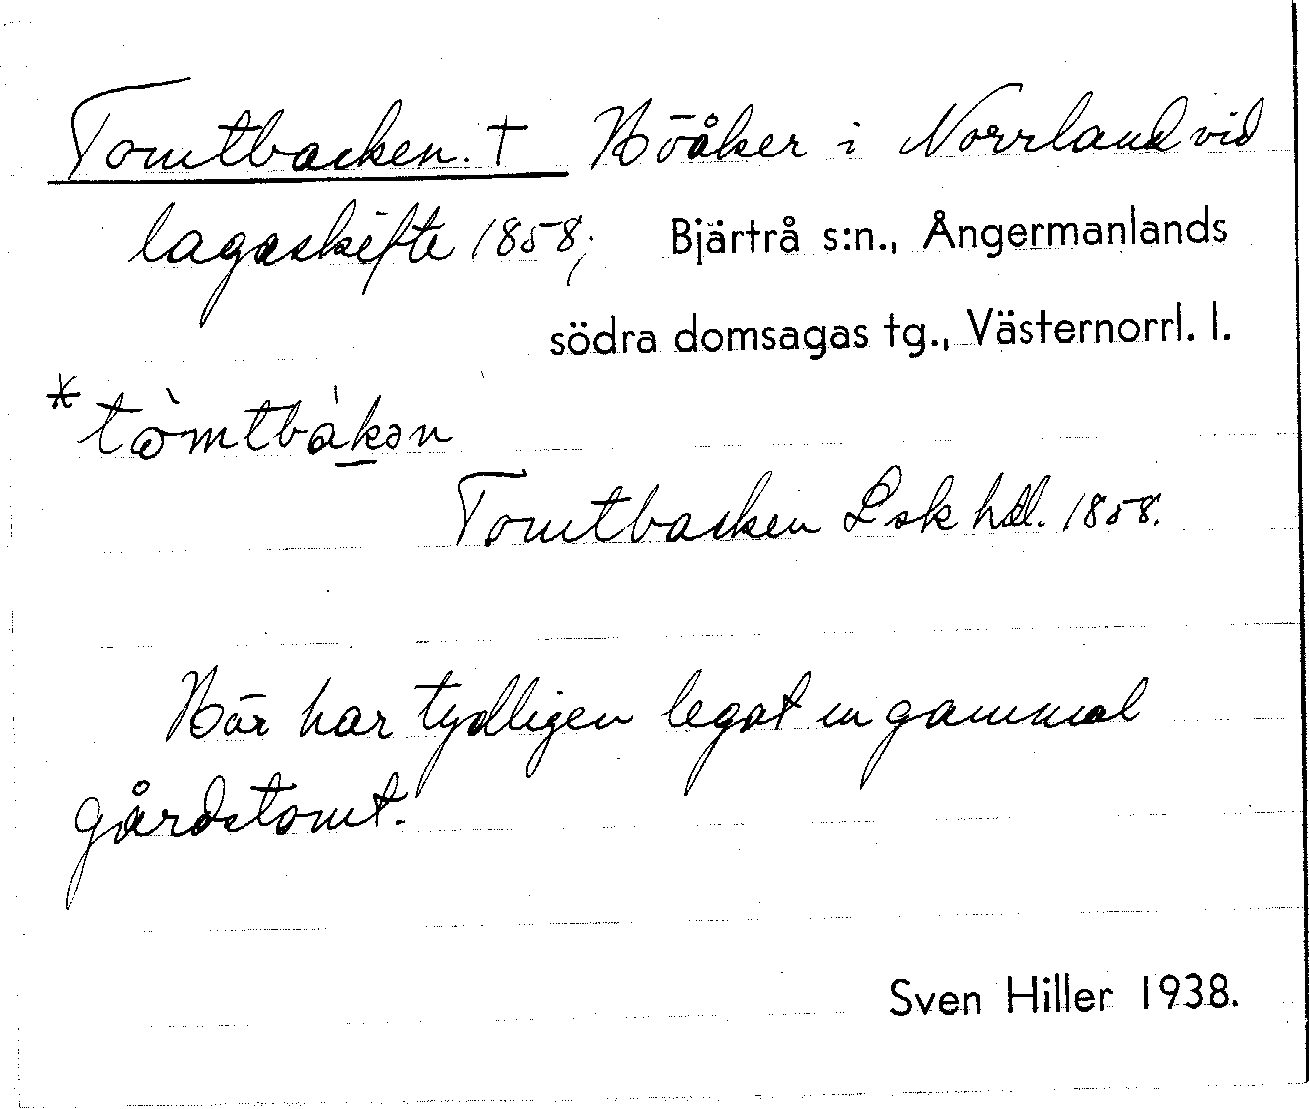 Tomtbacken. † Höåker i Norrland vid
lagaskifte 1858; Bjärtrå s:n., Ångermanlands
södra domsagas tg., Västernorrl. l.
* tòmtbàkən
Tomtbacken Lsk hdl. 1858.
Här har tydligen legat en gammal
gårdstomt.
Sven Hiller 1938.